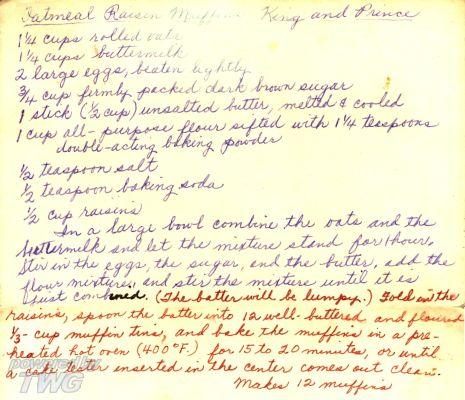 Oatmeal Raisin Muffins King and Prince
1 1/4 cups rolled oats
1 1/4 cups buttermilk
2 large eggs, beaten lightly
3/4 cup firmly packed dark brown sugar
1 stick (1/2 cup) unsalted butter, melted & cooled
1 cup all-purpose flour sifted with 1 1/4 teaspoons
double-acting baking powder
1/2 teaspoon salt
1/2 teaspoon baking soda
1/2 cup raisins
In a large bowl combine the oats and the
buttermilk and let the mixture stand for 1 hour.
Stir in the eggs, the sugar, and the butter, add the
flour mixture, and stir the mixture until it is
just combined. (The batter will be lumpy.) Fold in the
raisins, spoon the batter into 12 well-buttered and floured
1/3-cup muffin tins, and bake the muffins in a pre-
heated hot oven (400°F.) for 15 to 20 minutes, or until
a cake tester inserted in the center comes out clean.
Makes 12 muffins
powered by
TWG